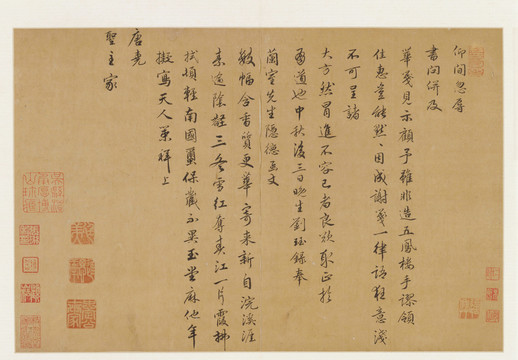 仰間忽辱
書問併及
華箋見示顧予雖非造五鳳樓手謬領
佳惠豈能默默因成謝箋一律語鄙意淺
不可呈諸
大方然冒進不容已者良欲取正於
有道也中秋後三日晚生劉珏錄奉
蘭室先生隱德至文
數幅含香質更華寄來新自浣溪涯
素逾除䞓三冬雪紅奪春江一片霞拂
拭頓輕南國蠒保藏不異玉堂麻他年
擬寫天人策拜上
唐堯
聖主家